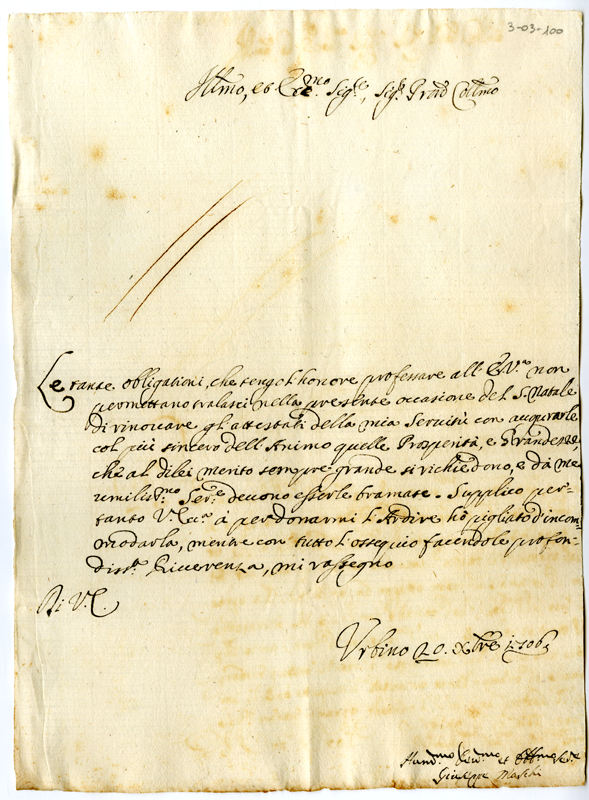 3-03-100
Illmo, et Eccmo. Sigre, Sigr. Prõn Collmo
Le tante obligationi, che tengo l'honore professare all'E. Vra. non
permettano tralasci nella presente occasione del S. Natale
di rinovare gl'attestati della mia Servitù con augurarle
col più sincero dell'Animo quelle Prosperità, e Grandezze,
che al di lei merito sempre grande si richiedono, e da me
umiliss.mo Ser.e devono esserle bramate. Supplico per=
tanto V. Ecc.a à perdonarmi l'Ardire hò pigliato d'incom=
modarla, mentre con tutto l'ossequio facendole profon=
diss.a Riverenza, mi rassegno
Di V. E.
Urbino 20. Xbre 1706
Hum.mo Dev.mo et Obb.mo Se.re
Giuseppe